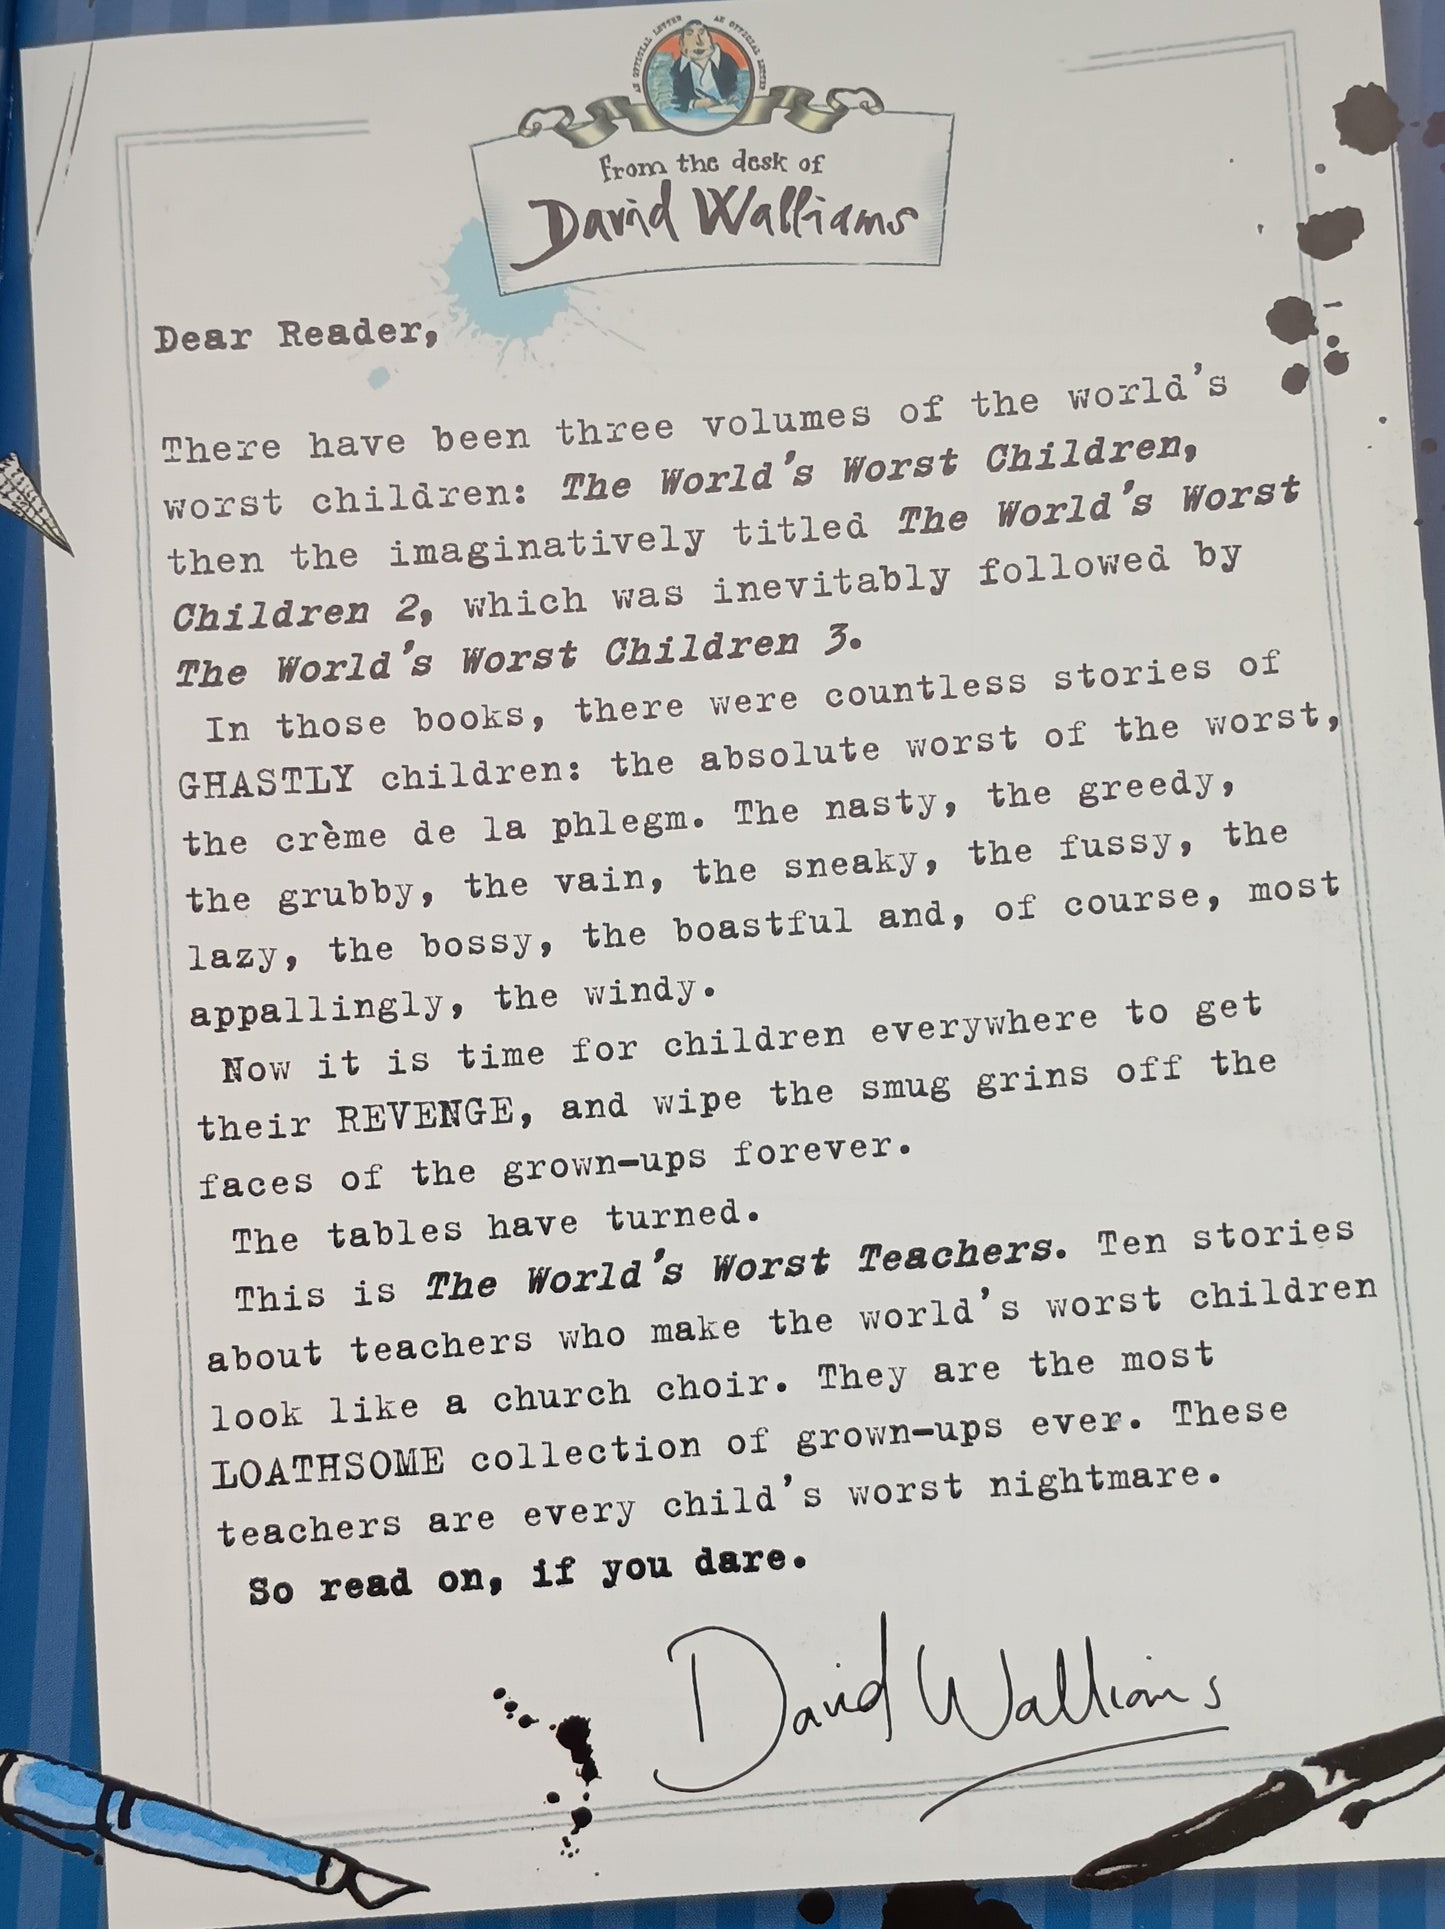 AN OFFICIAL LETTER AN OFFICIAL LETTER
from the desk of
David Walliams
Dear Reader,
There have been three volumes of the world's
worst children: The World's Worst Children,
then the imaginatively titled The World's Worst
Children 2, which was inevitably followed by
The World's Worst Children 3.
In those books, there were countless stories of
GHASTLY children: the absolute worst of the worst,
the crème de la phlegm. The nasty, the greedy,
the grubby, the vain, the sneaky, the fussy, the
lazy, the bossy, the boastful and, of course, most
appallingly, the windy.
Now it is time for children everywhere to get
their REVENGE, and wipe the smug grins off the
faces of the grown-ups forever.
The tables have turned.
This is The World's Worst Teachers. Ten stories
about teachers who make the world's worst children
look like a church choir. They are the most
LOATHSOME collection of grown-ups ever. These
teachers are every child's worst nightmare.
So read on, if you dare.
David Walliams